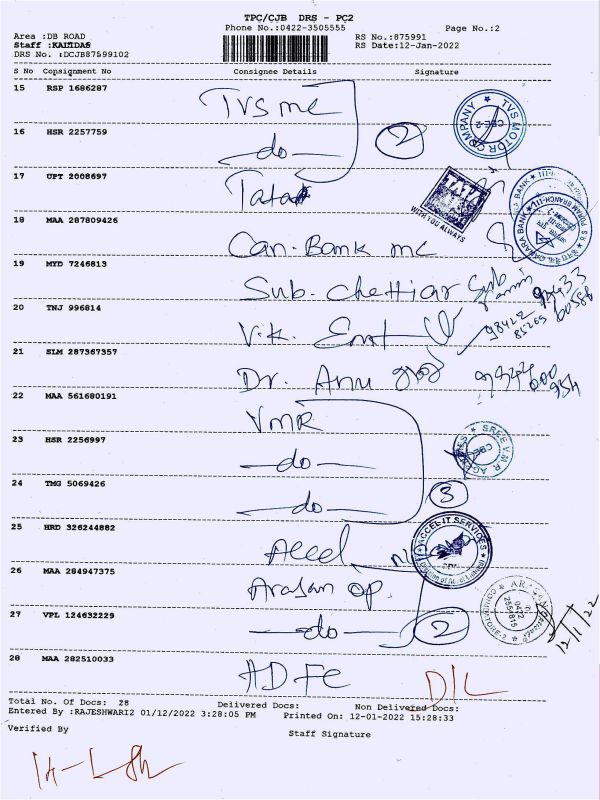 TPC/CJB DRS - PC2
Phone No.:0422-3505555 Page No.:2
Area :DB ROAD RS No.:875991
Staff :KALIDAS RS Date:12-Jan-2022
DRS No. :DCJB87599102
S No Consignment No Consignee Details Signature
15 RSP 1686287 TVS mc
TVS MOTOR COMPANY CBE-2
16 HSR 2257759 -do- 2
17 UPT 2008697 Tata
WITH YOU ALWAYS
18 MAA 287809426 Can. Bank mc
CANARA BANK
19 MYD 7246813 Sub. Chettiar
20 TNJ 996814 V.K. 98422 85265
21 SLM 287367357 Dr. Anu
22 MAA 561680191 VMR
23 HSR 2256997 -do-
SREE V.M.R. AGENCIES CBE
24 TMG 5069426 -do- 3
25 HRD 326244882 Accel
ACCEL IT SERVICES
26 MAA 284947375 Arasan op.
27 VPL 124632229 -do- 2
COIMBATORE-2 12/1/22
28 MAA 282510033 HDFC D/L
Total No. Of Docs: 28 Delivered Docs: Non Delivered Docs:
Entered By :RAJESHWARI2 01/12/2022 3:28:05 PM Printed On: 12-01-2022 15:28:33
Verified By Staff Signature